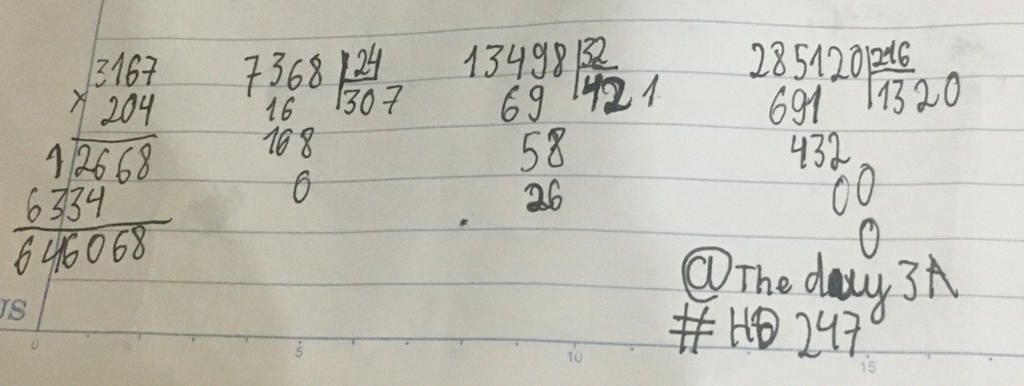 3167
× 204
12668
6334
646068
7368 24
16 307
168
0
13498 32
69 421
58
26
285120 216
691 1320
432
00
0
@The dayy 3A
#HĐ 247
US
0 5 10 15